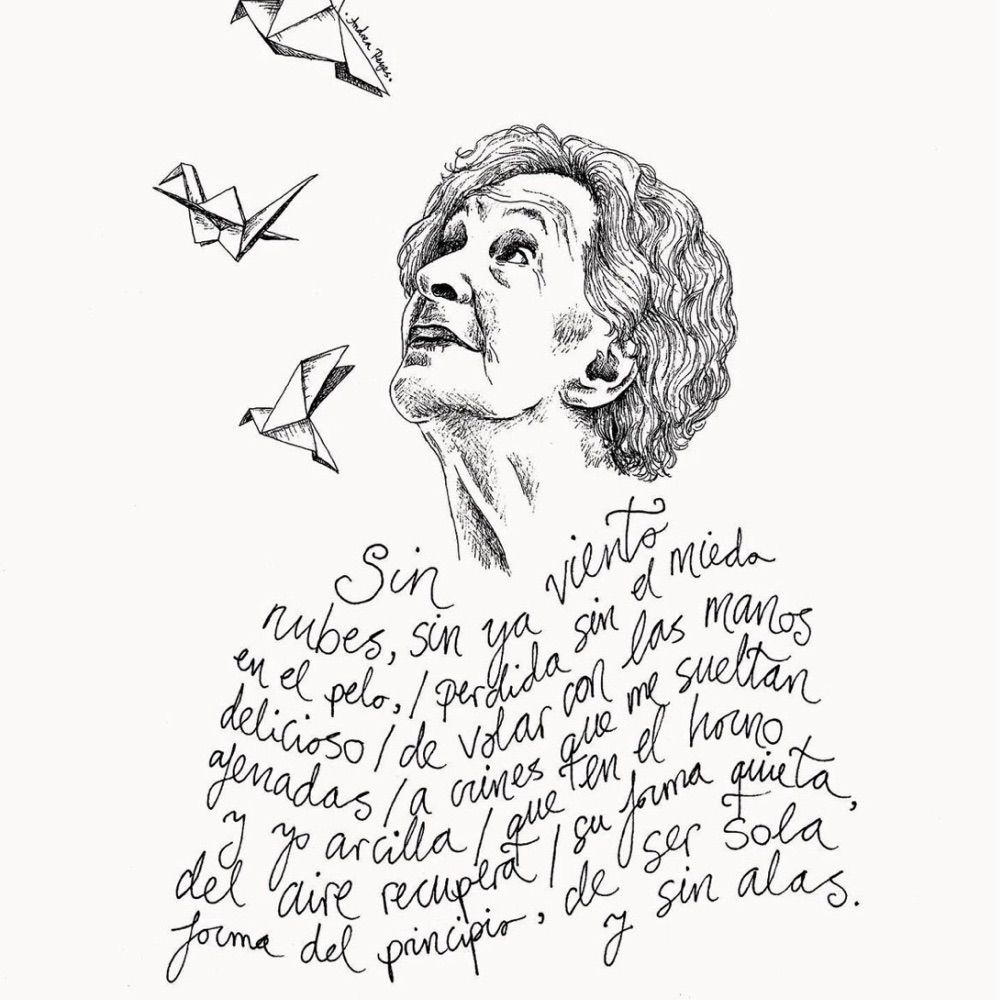 . Andrea Reyes.
Sin
nubes, sin ya viento
en el pelo, / perdida sin el miedo
delicioso / de volar con las manos
/ a crines que me sueltan
y yo arcilla / que en el horno
del aire recupera / su forma quieta,
forma del principio, de ser sola
y sin alas.